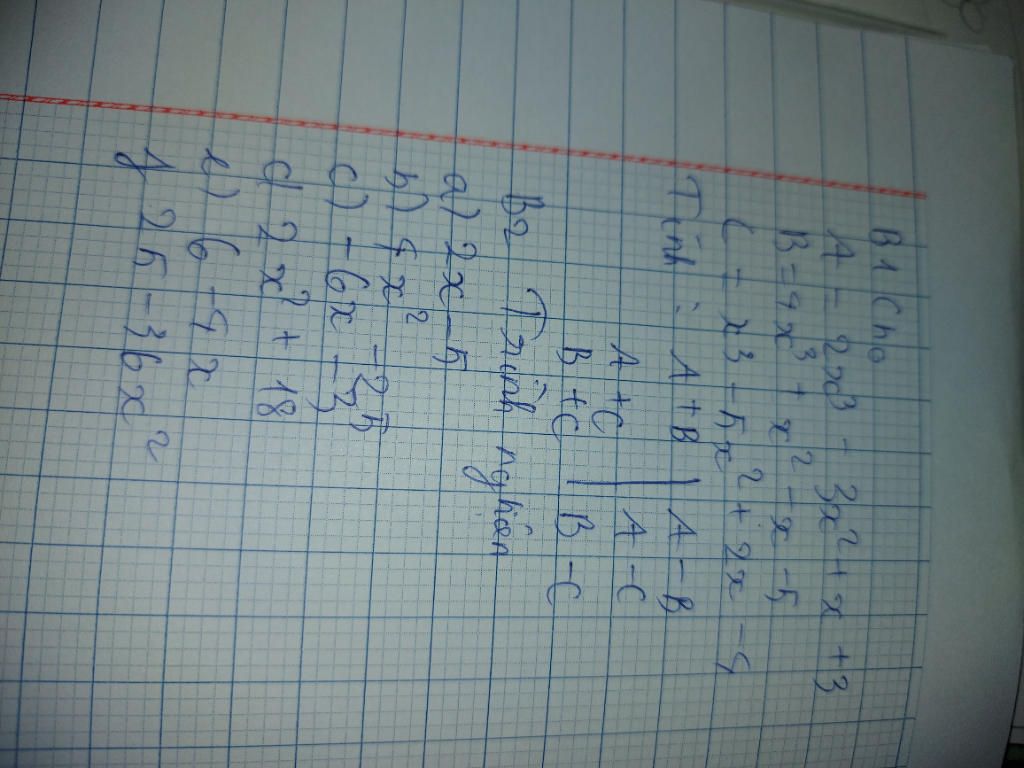 B1 Cho
A = 2x³ - 3x² + x + 3
B = 4x³ + x² - x - 5
C = x³ - 5x² + 2x - 4
Tính : A+B | A - B
A+C | A - C
B+C | B - C
B2 nghiệm
a) 2x - 5
b) 4x² - 25
c) - 6x - 3
d 2x² + 18
e) 6 - 4x
f 25 - 36x²